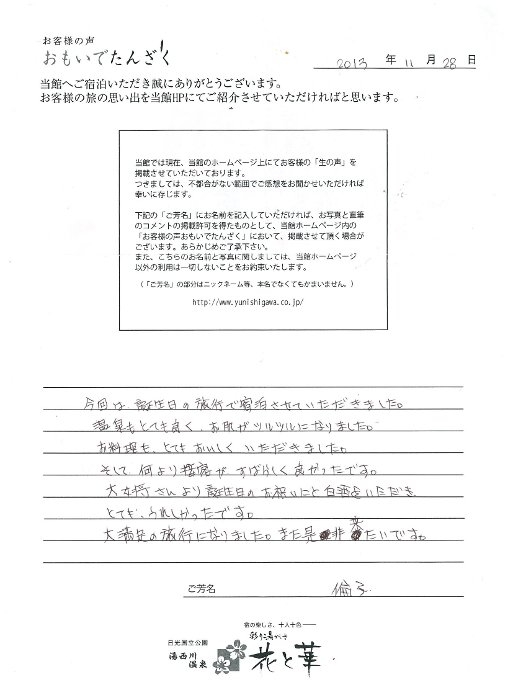 お客様の声
おもいでたんざく
2013 年 11 月 28 日
当館へご宿泊いただき誠にありがとうございます。
お客様の旅の思い出を当館HPにてご紹介させていただければと思います。
当館では現在、当館のホームページ上にてお客様の「生の声」を
掲載させていただいております。
つきましては、不都合がない範囲でご感想をお聞かせいただければ
幸いに存じます。
下記の「ご芳名」にお名前を記入していただければ、お写真と直筆
のコメントの掲載許可を得たものとして、当館ホームページ内の
「お客様の声おもいでたんざく」において、掲載させて頂く場合が
ございます。あらかじめご了承下さい。
また、こちらのお名前と写真に関しましては、当館ホームページ
以外の利用は一切しないことをお約束いたします。
（「ご芳名」の部分はニックネーム等、本名でなくてもかまいません。）
http://www.yunishigawa.co.jp/
今回は、誕生日の旅行で宿泊させていただきました。
温泉もとても良く、お肌がツルツルになりました。
お料理も、とてもおいしくいただきました。
そして、何より接客がすばらしく良かったです。
大女将さんより誕生日のお祝いにと白酒をいただき
とても、うれしかったです。
大満足の旅行になりました。また是非来たいです。
ご芳名
宿の楽しさ、十人十色
日光国立公園
湯西川
温泉
彩り湯かしき
花と華